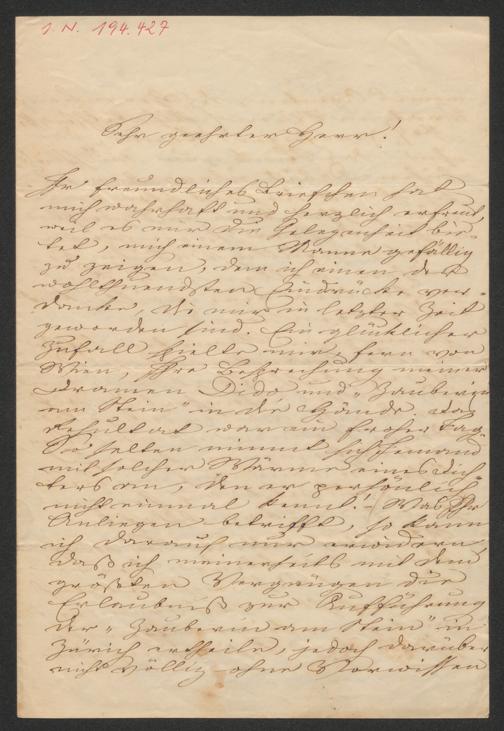 J. N. 194.427
Sehr geehrter Herr!
Ihr freundliches Briefchen hat
mich wahrhaft und herzlich erfreut,
weil es mir die Gelegenheit bie-
tet, mich einem Manne gefällig
zu zeigen, dem ich einen der
wohlthuendsten Eindrücke ver-
danke, die mir in letzter Zeit
geworden sind. Ein glücklicher
Zufall spielte mir, fern von
Wien, Ihre Besprechung meiner
Dramen Dido und „Zauberin
am Stein" in die Hände. Das
Resultat war ein froher Tag.
So selten nimmt sich Jemand
mit solcher Wärme eines Dich-
ters an, den er persönlich
nicht einmal kennt! Was Ihr
Anliegen betrifft, so kann
ich darauf nur erwidern,
daß ich meinerseits mit dem
größten Vergnügen die
Erlaubniß zur Aufführung
der „Zauberin am Stein" in
Zürich ertheile, jedoch darüber
nicht völlig ohne Vorwissen